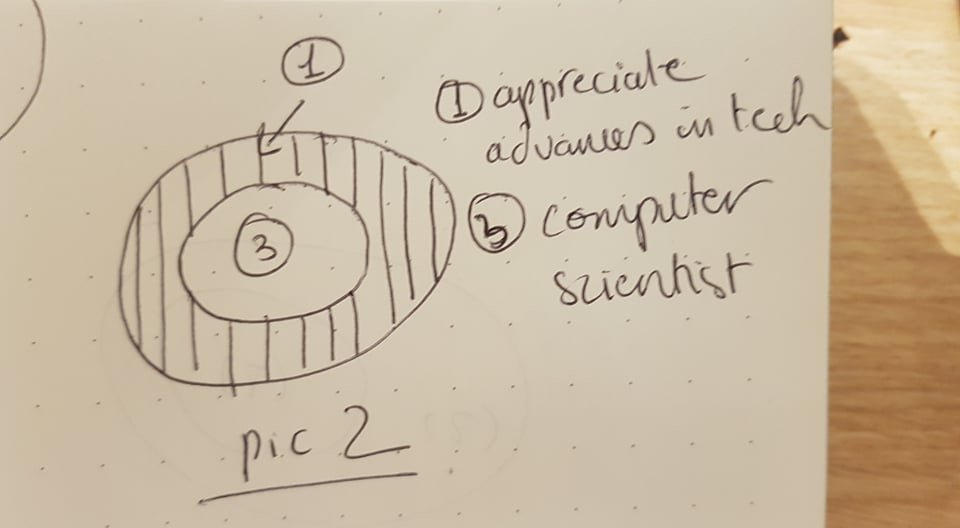 1
3
pic 2
① appreciate
advances in tech
③ computer
scientist